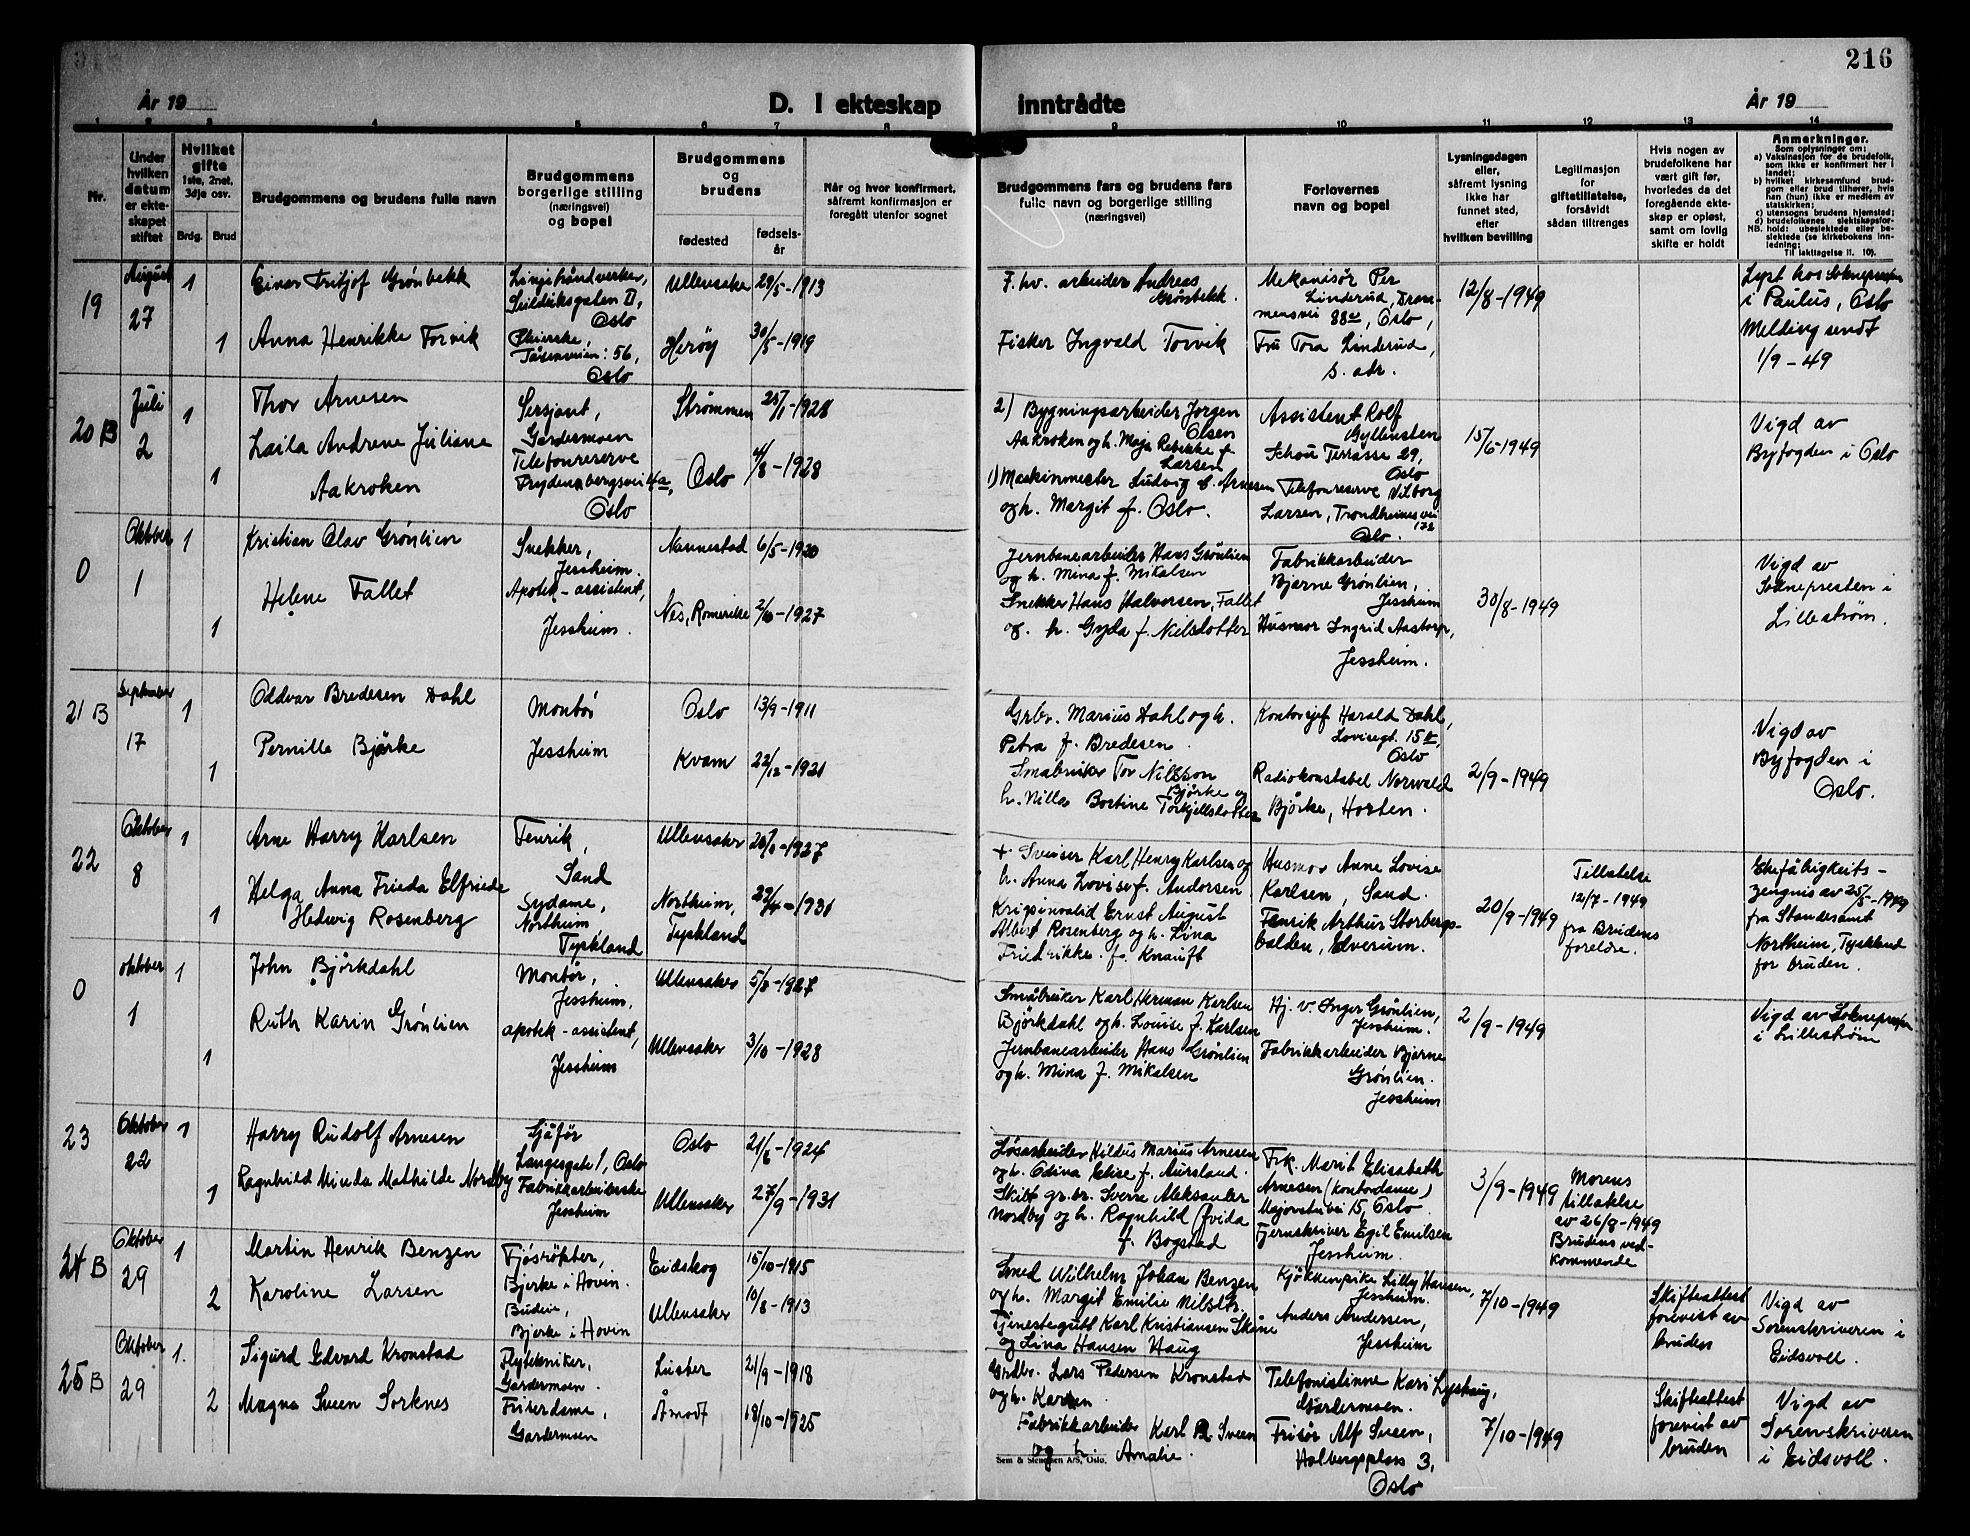 216
År 19
D. I ekteskap
inntrådte
År 19
1 2 3 4 5 6 7 8 9 10 11 12 13 14
Nr.
Under
hvilken
datum
er ekte-
skapet
stiftet
Hvilket
gifte
1ste, 2net,
3dje osv.
Brdg.
Brud
Brudgommens og brudens fulle navn
Brudgommens
borgerlige stilling
(næringsvei)
og bopel
Brudgommens
og
brudens
fødested
fødsels-
år
Når og hvor konfirmert,
såfremt konfirmasjon er
foregått utenfor sognet
Brudgommens fars og brudens fars
fulle navn og borgerlige stilling
(næringsvei)
Forlovernes
navn og bopel
Lysningsdagen
eller,
såfremt lysning
ikke har
funnet sted,
efter
hvilken bevilling
Legitimasjon
for
giftetillatelse,
forsåvidt
sådan tiltrenges
Hvis nogen av
brudefolkene har
vært gift før,
hvorledes da det
foregående ekte-
skap er opløst,
samt om lovlig
skifte er holdt
Anmerkninger.
Som oplysninger om:
a) Vaksinasjon for de brudefolk,
som ikke er konfirmert her i
landet;
b) hvilket kirkesamfund brud-
gom eller brud tilhører, hvis
han (hun) ikke er medlem av
statskirken;
c) utensogns brudens hjemsted;
d) brudefolkenes slektskapsfor-
NB. hold: ubeslektede eller be-
slektede (se kirkebokens inn-
ledning;
Til iakttagelse II. 10).
19
August
27
1
1
Einar Fritjof Grønbekk
Anna Henrikke Torvik
Oslo
Tåsenveien: 56,
Oslo
Ullensaker 28/5-1913
Herøy 30/5-1919
F. hv. arbeider Andreas
Grønbekk.
Fisker Ingvald Torvik
Mekanisør Per
Linderud, Dram-
mensvei 88, Oslo,
Fru Tora Linderud,
s. adr.
12/8-1949
Lyst hos Sogneprest
i Paulus, Oslo
Melding sendt
1/9-49
20 B
Juli
2
1
1
Thor Arnesen
Laila Andrene Juliane
Aakroken
Sersjant,
Gardermoen
Telefonreserve
Frydenbergsvei 4a,
Oslo
Strømmen 25/1-1928
Oslo 4/8-1928
2) Bygningsarbeider Jørgen
Olsen
Aakroken og h. Maja Rebekke f.
Larsen
1) Maskinmester Ludvig C. Arnesen
og h. Margit f. Olso.
Assistent Rolf
Gyllensten
Schou Terrasse 29,
Oslo
Telefonreserve Vilborg
Larsen, Trondheimsvei
172
Oslo.
15/6-1949
Vigd av
Byfogden i Oslo
0
Oktober
1
1
1
Kristian Olav Grønlien
Helene Fallet
Snekker,
Jessheim.
Apotek-assistent,
Jessheim.
Nannestad 6/5-1920
Nes, Romerike 2/6-1927
Jernbanearbeider Hans Grønlien
og h. Mina f. Mikalsen
Snekker Hans Halvorsen, Fallet
og. h. Gyda f. Nilsdotter
Fabrikkarbeider
Bjarne Grønlien,
Jessheim
Husmor Ingrid Aastorp,
Jessheim.
30/8-1949
Vigd av
Soknepresten i
Lillestrøm.
21 B
September
17
1
1
Oddvar Bredesen Dahl
Pernille Bjørke
Montør
Jessheim
Oslo 13/9-1911
Kvam 22/12-1921
Grbr. Marius Dahl og h.
Petra f. Bredesen.
Småbruker Tor Nilsson
Bjørke og
h. Nilla Bortine Torkjellsdotter
Kontorsjef Harald Dahl,
Lovisegt. 15 II,
Oslo
Radiokonstabel Norwald
Bjørke, Horten.
2/9-1949
Vigd av
Byfogden i
Oslo.
22
Oktober
8
1
1
Arne Harry Karlsen
Helga Anna Frieda Elfriede
Hedwig Rosenberg
Fenrik,
Sand
Sydame,
Northeim
Tyskland
Ullensaker
Northeim, 29/4-1931
Tyskland
+ Sveiser Karl Henry Karlsen og
h. Anna Lovise f. Andersen
Krigsinvalid Ernst August
Albert Rosenberg og h. Lina
Friedrikke. f. Knauft
Husmor Anne Lovise
Karlsen, Sand.
Fenrik Arthur Storbergs-
balden, Elverum.
20/9-1949
Tillatelse
12/7-1949
fra Brudens
foreldre.
Ehefähigkeits-
zeugnis av 25/5-1949
fra Standesamt
Northeim, Tyskland
for bruden.
0
oktober
1
1
1
John Bjørkdahl
Ruth Karin Grønlien
Montør,
Jessheim,
apotek-assistent,
Jessheim
Ullensaker 5/8-1927
Ullensaker 3/10-1928
Småbruker Karl Herman Karlsen
Bjørkdahl og h. Louise f. Karlsen
Jernbanearbeider Hans Grønlien
og h. Mina f. Mikalsen
Hj. v. Inger Grønlien,
Jessheim.
Fabrikkarbeider Bjarne
Grønlien.
Jessheim
2/9-1949
Vigd av Sokneprest
i Lillestrøm
23
Oktober
22
1
1
Harry Rudolf Arnesen
Ragnhild Minda Mathilde Nordby
Sjåfør
Langesgate 1, Oslo
Fabrikkarbeiderske
Jessheim
Oslo 21/6-1924
Ullensaker 27/9-1931
Løsarbeider Hildus Marius Arnesen
og h. Odina Elise f. Aursland.
Skilt gr.br. Sverre Aleksander
Nordby og h. Ragnhild Ovida
f. Bogstad
Frk. Marit Elisabeth
Arnesen (kontordame)
Majorstuvei 15, Oslo.
Fjernskriver Egil Emilsen
Jessheim.
3/9-1949
Morens
tillatelse
av 26/8-1949
Brudens ved-
kommende
24 B
Oktober
29
1
2
Martin Henrik Benzen
Karoline Larsen
Fjøsrøkter,
Bjerke i Hovin.
Budeie,
Bjerke i Hovin
Eidskog 15/10-1915
Ullensaker 10/8-1913
Smed Wilhelm Johan Benzen
og h. Margit Emilie Nilsdtr.
Tjenestegutt Karl Kristiansen Skåne
og Lina Hansen Haug
Kjøkkenpike Lilly Hansen,
Jessheim.
Anders Andersen,
Jessheim
7/10-1949
Skifteattest
forevist av
bruden
Vigd av
Sorenskriveren i
Eidsvoll.
25 B
Oktober
29
1.
2
Sigurd Edvard Kronstad
Magna Sveen Sorknes
Flytekniker,
Gardermoen.
Friserdame,
Gardermoen
Luster 21/9-1918
Åmodt 18/10-1925
Grdbr. Lars Pedersen Kronstad
og h. Karen
Fabrikkarbeider Karl R Sveen
og h. Amalie.
Telefonistinne Kari Lyshaug,
Gardermoen.
Frisør Alf Sveen,
Holbergsplass 3,
Oslo
7/10-1949
Skifteattest
forevist av
bruden
Vigd av
Sorenskriveren
i Eidsvoll.
Sem & Stenersen A/S, Oslo.